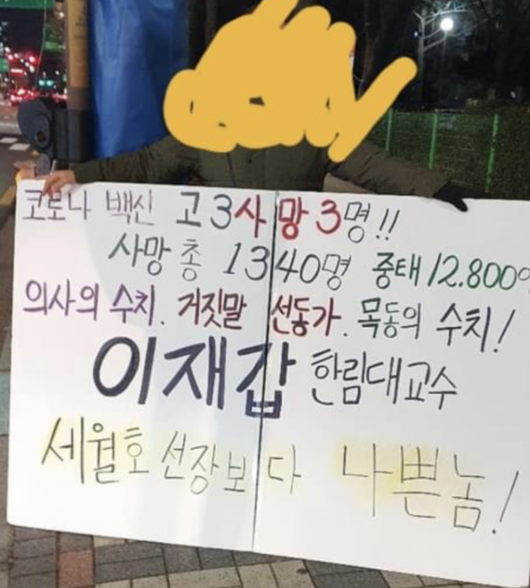 코로나 백신 고3사망3명!!
사망 총 1340명 중태 12.800명
의사의 수치. 거짓말 선동가. 목동의 수치!
이재갑 한림대교수
세월호 선장보다 나쁜놈!